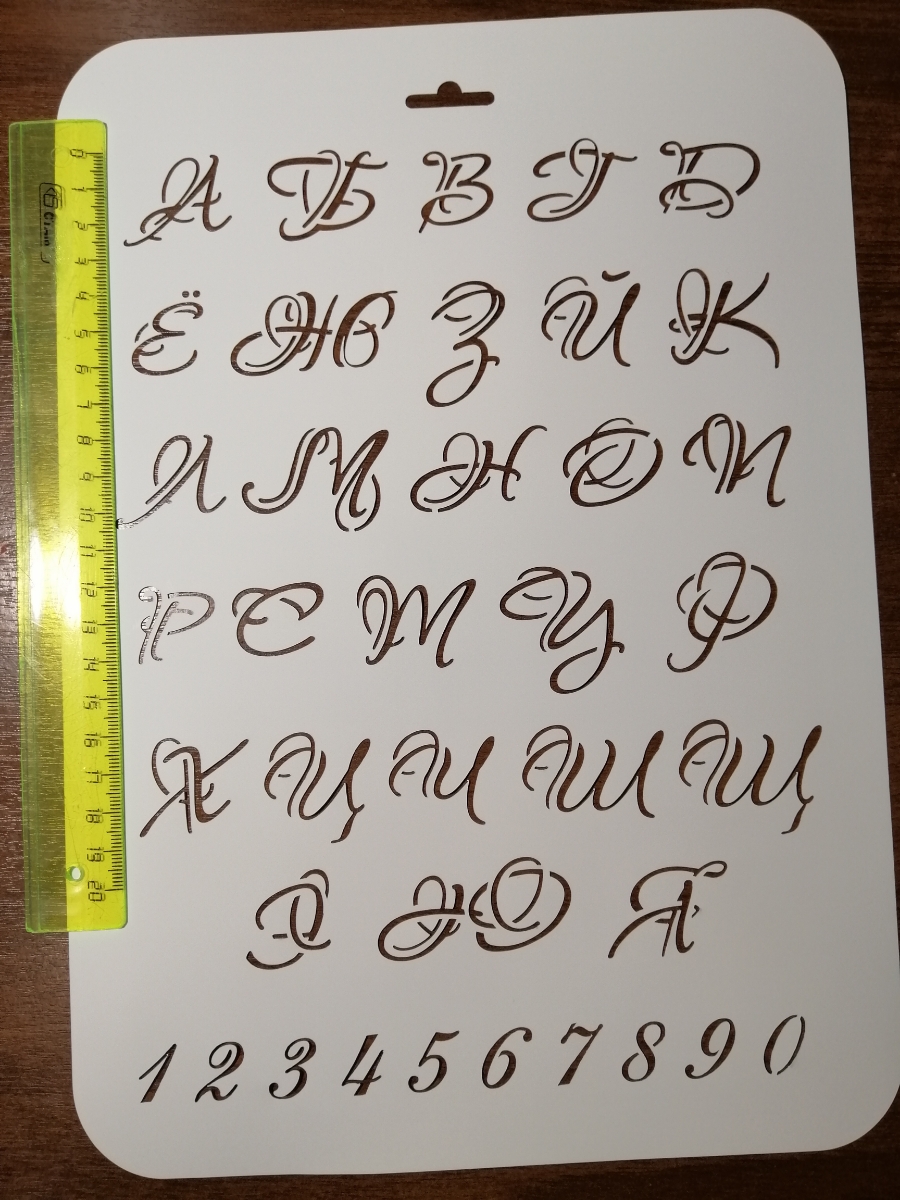 А Б В Г Д
Ё Ж З Й К
Л М Н О П
Р С Т У Ф
Х Ц Ч Ш Щ
Э Ю Я
1 2 3 4 5 6 7 8 9 0
0 1 2 3 4 5 6 7 8 9 10 11 12 13 14 15 16 17 18 19 20